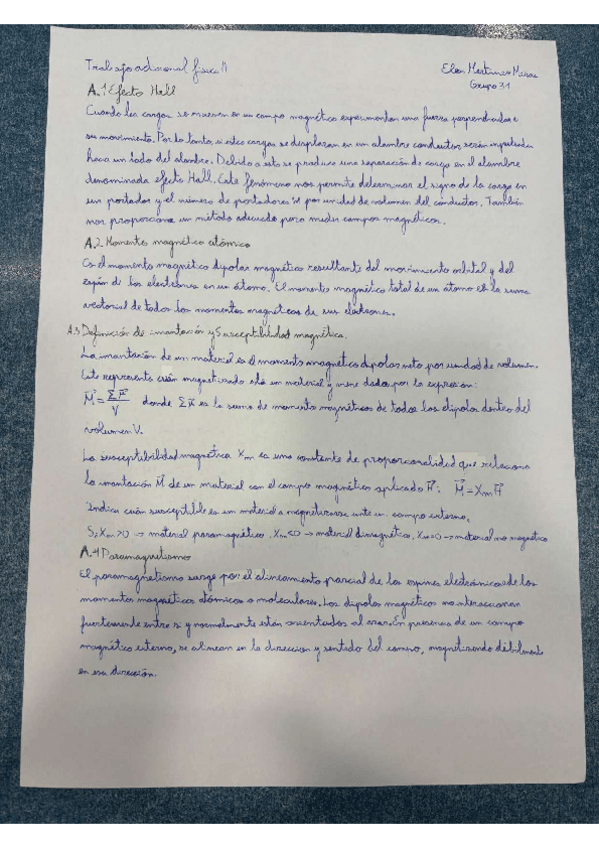 Trabajo adicional física II
Elen Martínez
Grupo 3.1
A.1 Efecto Hall
Cuando las cargas se mueven en un campo magnético experimentan una fuerza perpendicular a
su movimiento. Por lo tanto, si estas cargas se desplazan en un alambre conductor serán impulsadas
hacia un lado del alambre. Debido a esto se produce una separación de carga en el alambre
denominada efecto Hall. Este fenómeno nos permite determinar el signo de la carga en
sus portador y el número de portadores por unidad de volumen del conductor. También
nos proporciona un método adecuado para medir campos magnéticos.
A.2 Momentos magnético atómico
Es el momento magnético dipolar magnético resultante del movimiento orbital y del
espín de los electrones en un átomo. El momento magnético total de un átomo es la suma
vectorial de todos los momentos magnéticos de sus electrones.
A.3 Definición de imantación y Susceptibilidad magnética.
La imantación de un material es el momento magnético dipolar neto por unidad de volumen.
Este representa cuán magnetizado está un material y viene dada por la expresión:
M⃗ = Σμ⃗/V donde Σμ⃗ es la suma de momento magnéticos de todos los dipolos dentro del
volumen V.
La susceptibilidad magnética Xm es una constante de proporcionalidad que relaciona
la imantación M⃗ de un material con el campo magnético aplicado H⃗: M⃗ = Xm H⃗
Indica cuán susceptible es un material a magnetizarse ante un campo externo.
Si Xm>0 → material paramagnético. Xm<0 → material diamagnético. Xm=0 → material no magnético
A.4 Paramagnetismo
El paramagnetismo surge por el alineamiento parcial de los espines electrónicos de los
momentos magnéticos atómicos o moleculares. Los dipolos magnéticos no interaccionan
fuertemente entre sí y normalmente están orientados al azar. En presencia de un campo
magnético externo, se alinean en la dirección y sentido del campo, magnetizando débilmente
en esa dirección.